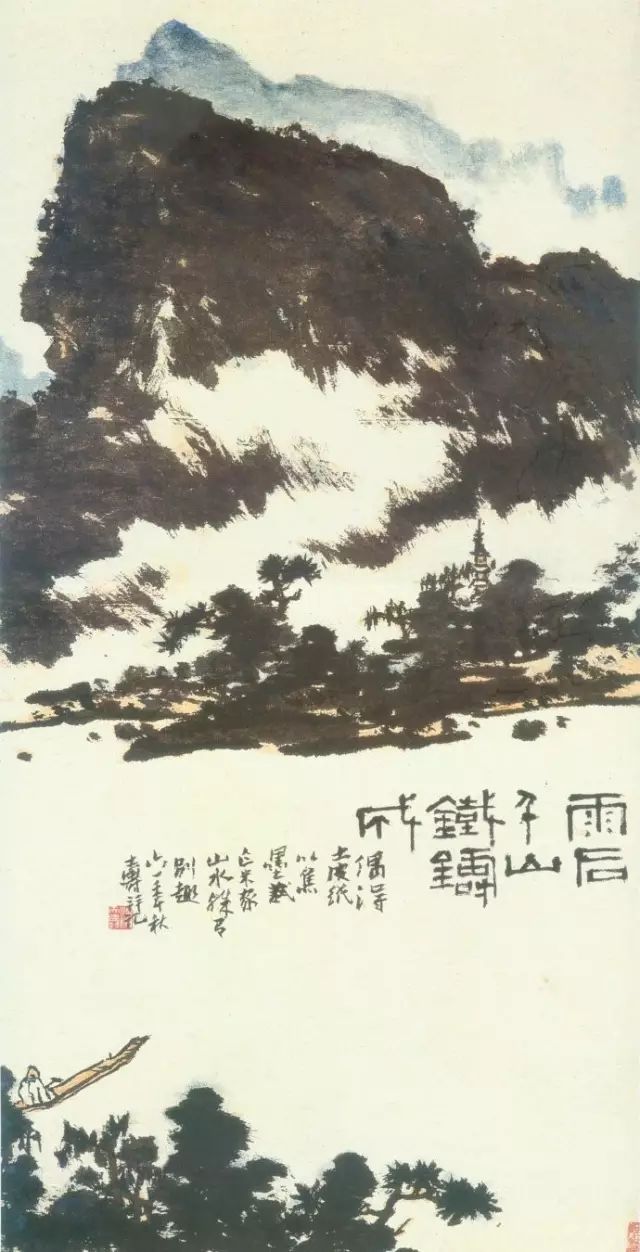 雨后
千山
鐵鑄
成
偶得
土皮紙
以焦
墨
米家
山水殊有
别趣
六一年秋
壽記